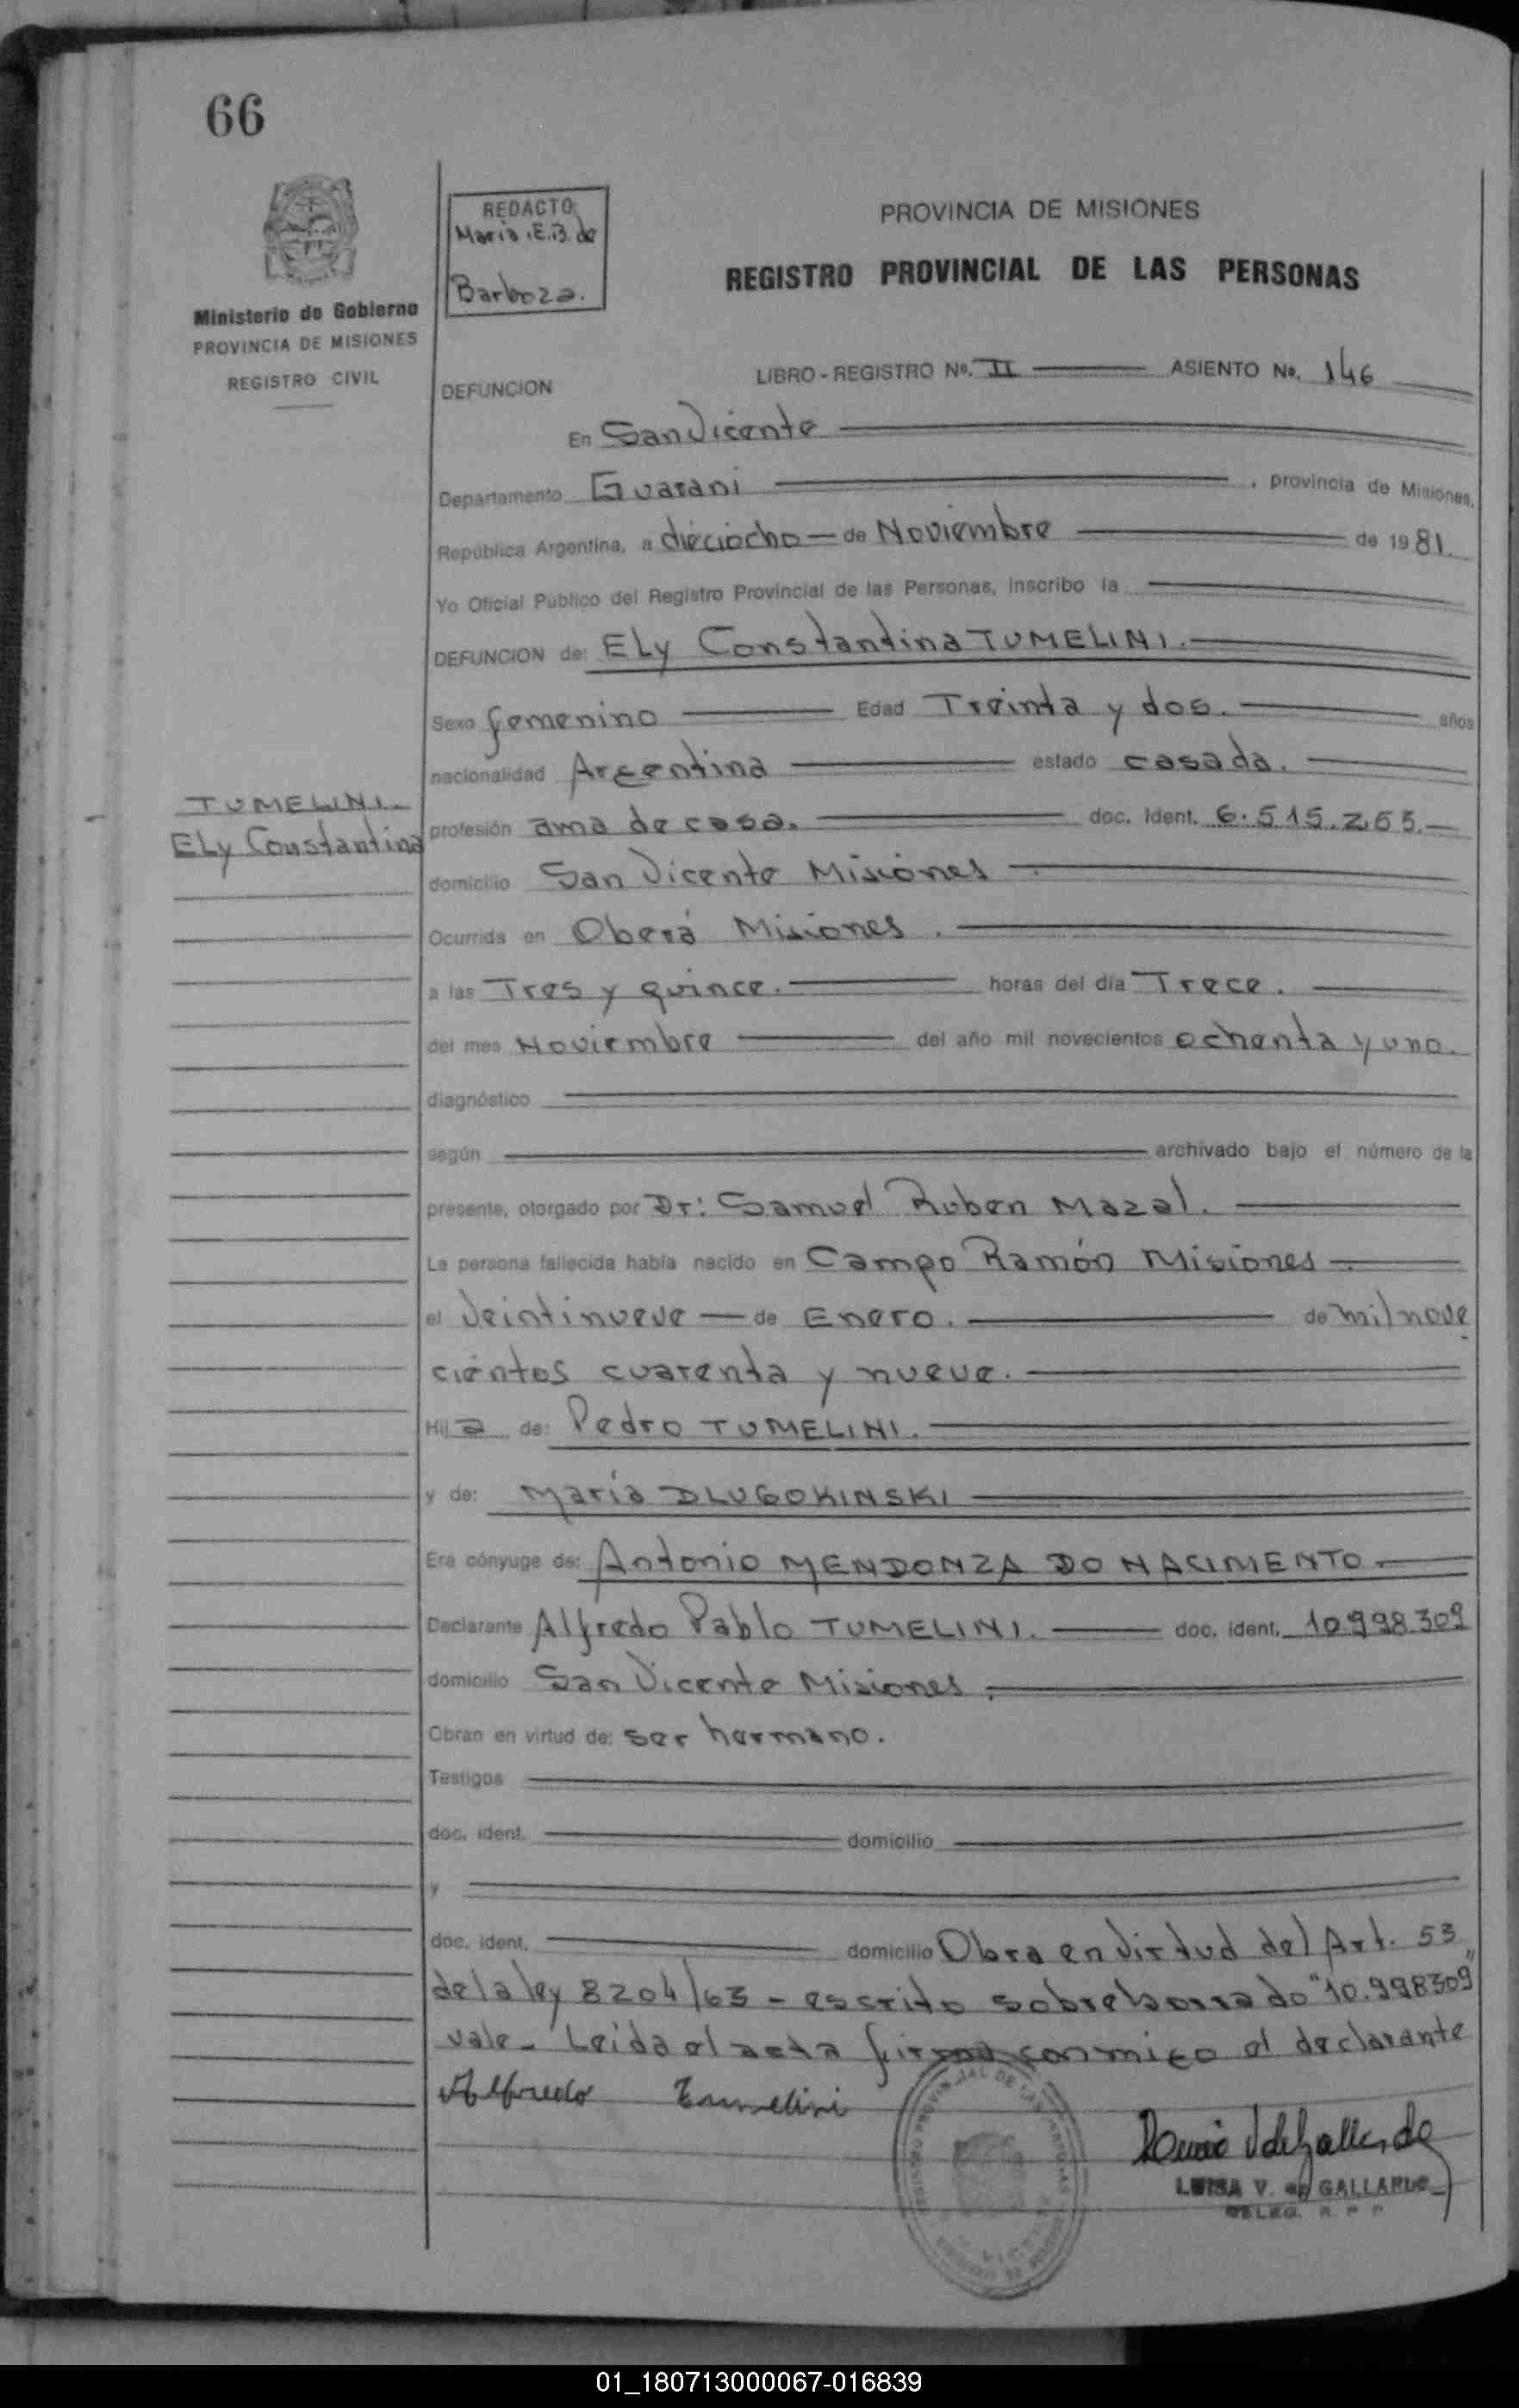 66
REDACTO:
Maria.E.B.de
Barboza.
Ministerio de Gobierno
PROVINCIA DE MISIONES
REGISTRO CIVIL
PROVINCIA DE MISIONES
REGISTRO PROVINCIAL DE LAS PERSONAS
LIBRO - REGISTRO Nº. II ASIENTO Nº. 146
DEFUNCION
En San Vicente
Departamento Guarani , provincia de Misiones,
República Argentina, a dieciocho de Noviembre de 1981.
Yo Oficial Público del Registro Provincial de las Personas, inscribo la
DEFUNCION de: ELy Constantina TUMELINI.
Sexo femenino Edad Treinta y dos. años
nacionalidad Argentina estado casada.
TUMELINI.
ELy Constantina
profesión ama de casa. doc. ident. 6.515.263.
domicilio San Vicente Misiones
Ocurrida en Oberá Misiones.
a las Tres y quince. horas del día Trece.
del mes Noviembre del año mil novecientos ochenta y uno.
diagnóstico
según archivado bajo el número de la
presente, otorgado por Dr: Samuel Ruben Mazal.
La persona fallecida había nacido en Campo Ramón Misiones
el Veintinueve de Enero. de mil nove
cientos cuarenta y nueve.
Hija de: Pedro TUMELINI.
y de: María DLUGOKINSKI
Era cónyuge de: Antonio MENDONZA DO NACIMENTO
Declarante Alfredo Pablo TUMELINI. doc. ident. 10.998.309
domicilio San Vicente Misiones.
Obran en virtud de: ser hermano.
Testigos
doc. ident. domicilio
y
doc. ident. domicilio Obra en Virtud del Art. 53
de la ley 8204/63 - escrito sobreborrado "10.998309"
vale - Leida el acta firma conmigo el declarante
Alfredo Tumelini
LUISA V. de GALLARDO
DELEG. R. P. P.
01_180713000067-016839